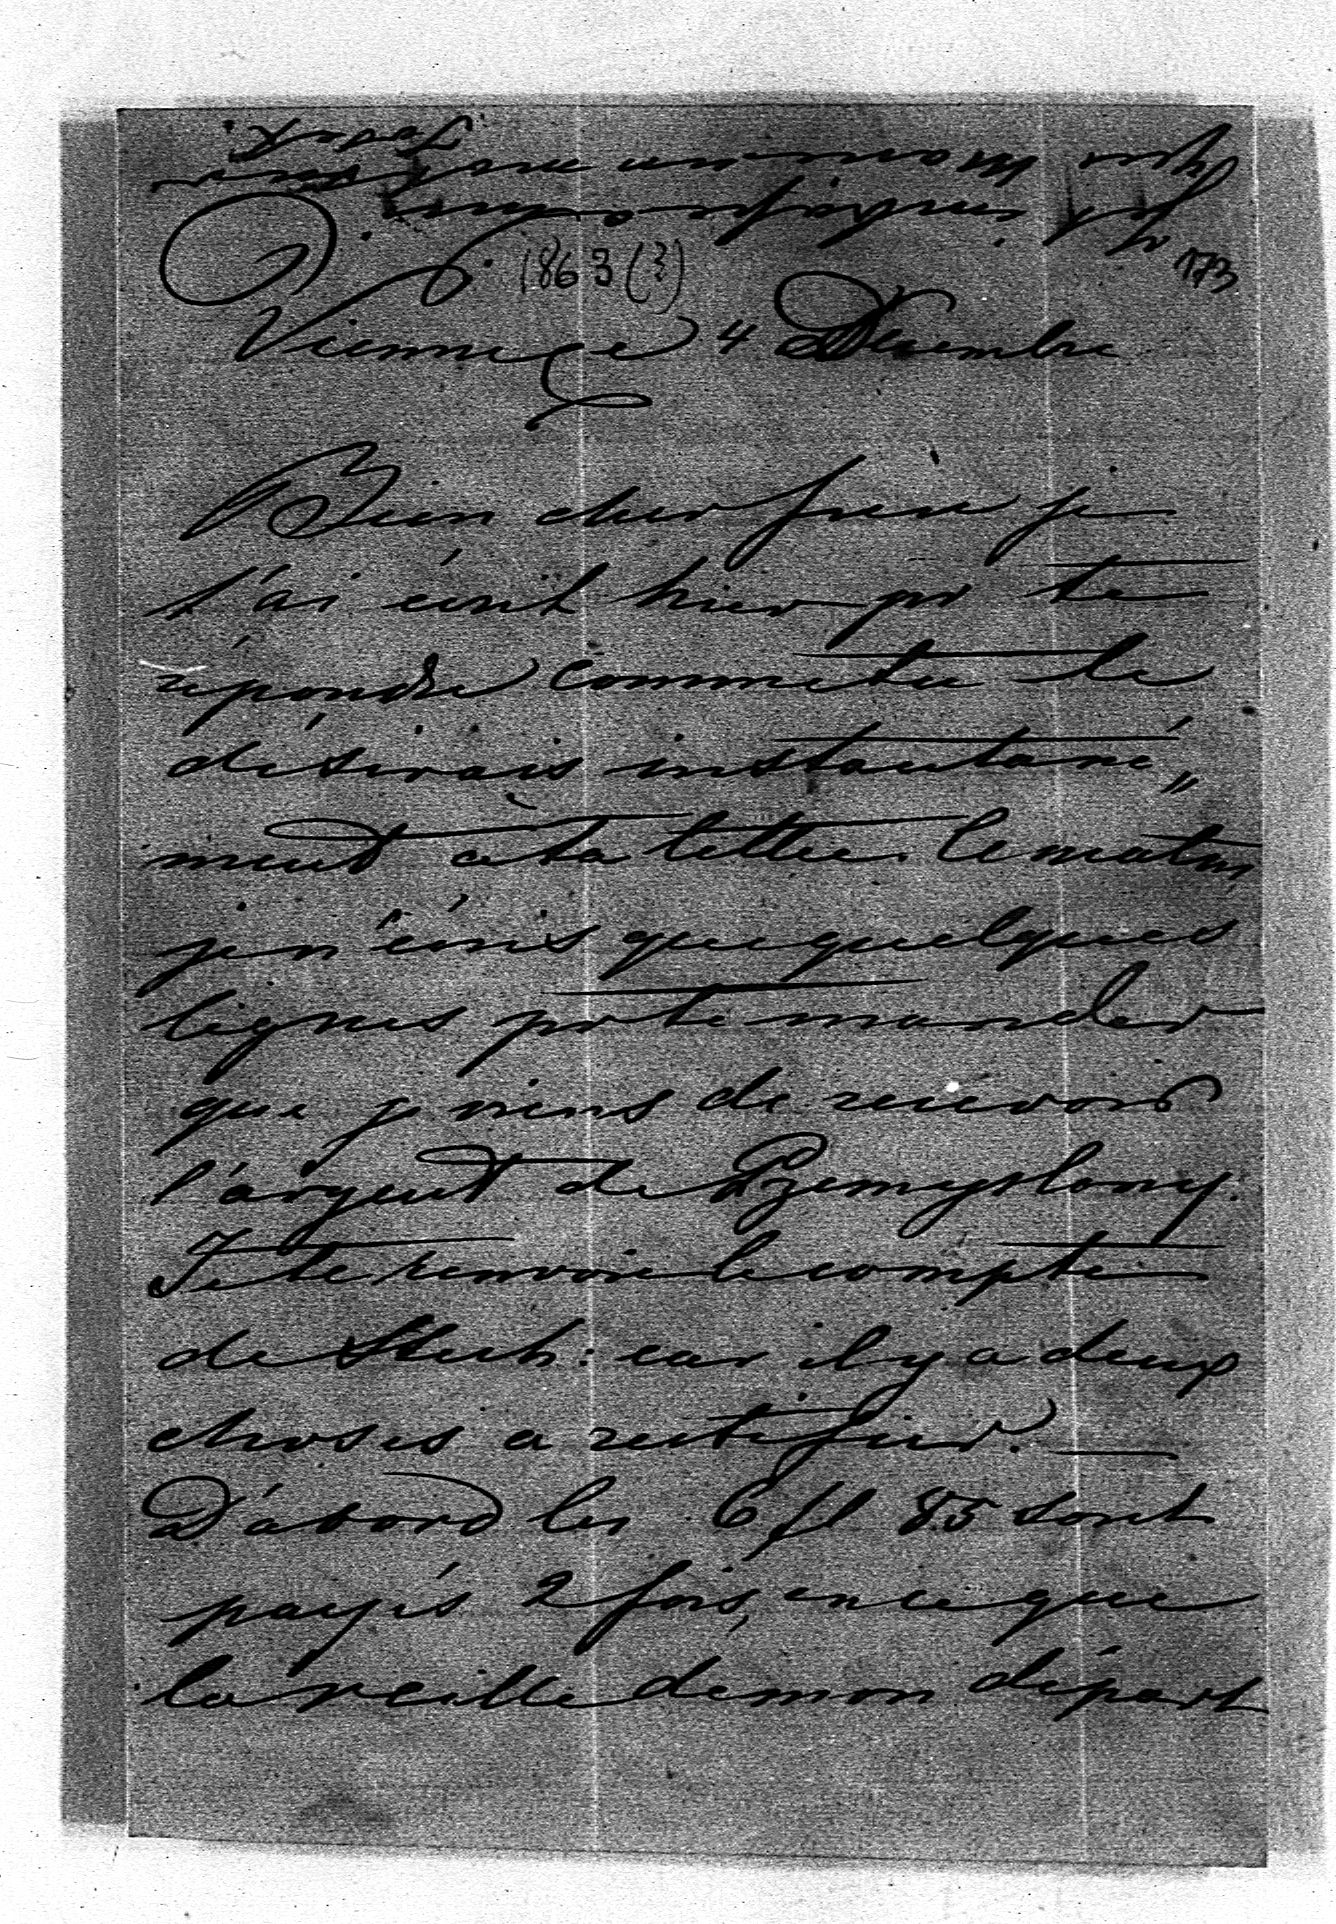 1863 (?)
173
Vienne ce 4 Decembre
Bien cher frère je
t'ai écrit hier pr te
répondre comme tu le
désirais instantané„
ment à ta lettre. Ce matin
je n'écris que quelques
lignes pr te mander
que je viens de recevoir
l'argent de Pzemyslany.
Je te renvoie le compte
de : car il y a deux
choses a rectifier. —
D'abord les 6 fl 85 sont
payés 2 fois, en ce que
la veille de mon départ